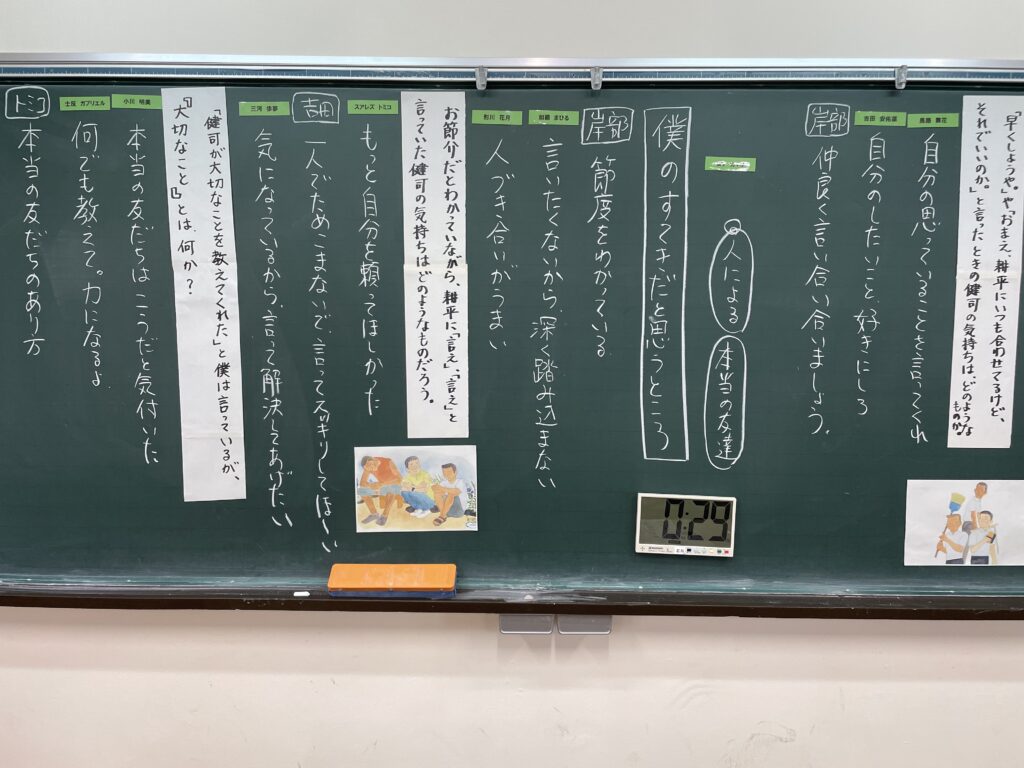 「早くしようや。」や「おまえ、耕平にいつも合わせてるけど、
それでいいのか。」と言ったときの健司の気持ちは、どのような
ものか。
自分の思っていることを言ってくれ
吉田 安佑菜
自分のしたいこと、好きにしろ
岸部
仲良く言い合い合いましょう。
人による
本当の友達
僕のすてきだと思うところ
岸部
節度をわかっている
加藤 まひる
言いたくないから、深く踏み込まない
影川 花月
人づき合いがうまい
お節介だとわかっていながら、耕平に「言え」、「言え」と
言っていた健司の気持ちはどのようなものだろう。
スアレズ トミコ
もっと自分を頼ってほしかった
吉田
一人でためこまないで、言ってスッキリしてほしい
三河 季夢
気になっているから、言って解決してあげたい
「健司が大切なことを教えてくれた」と僕は言っているが、
『大切なこと』とは、何か？
小川 明美
本当の友だちはこうだと気付いた
土屋 ガブリエル
何でも教えて。力になるよ
トミコ
本当の友だちのあり方
0:29